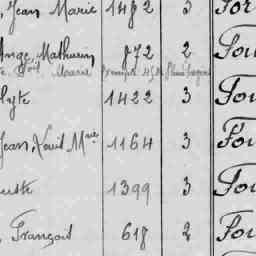 , Jean Marie 1482 3 For
Ange Mathurin 872 2 Fou
Marie
lyte 1422 3 Fou
Jean, Louis Mie 1164 3 Fou
1399 3 Fou
, François 618 2 Fou